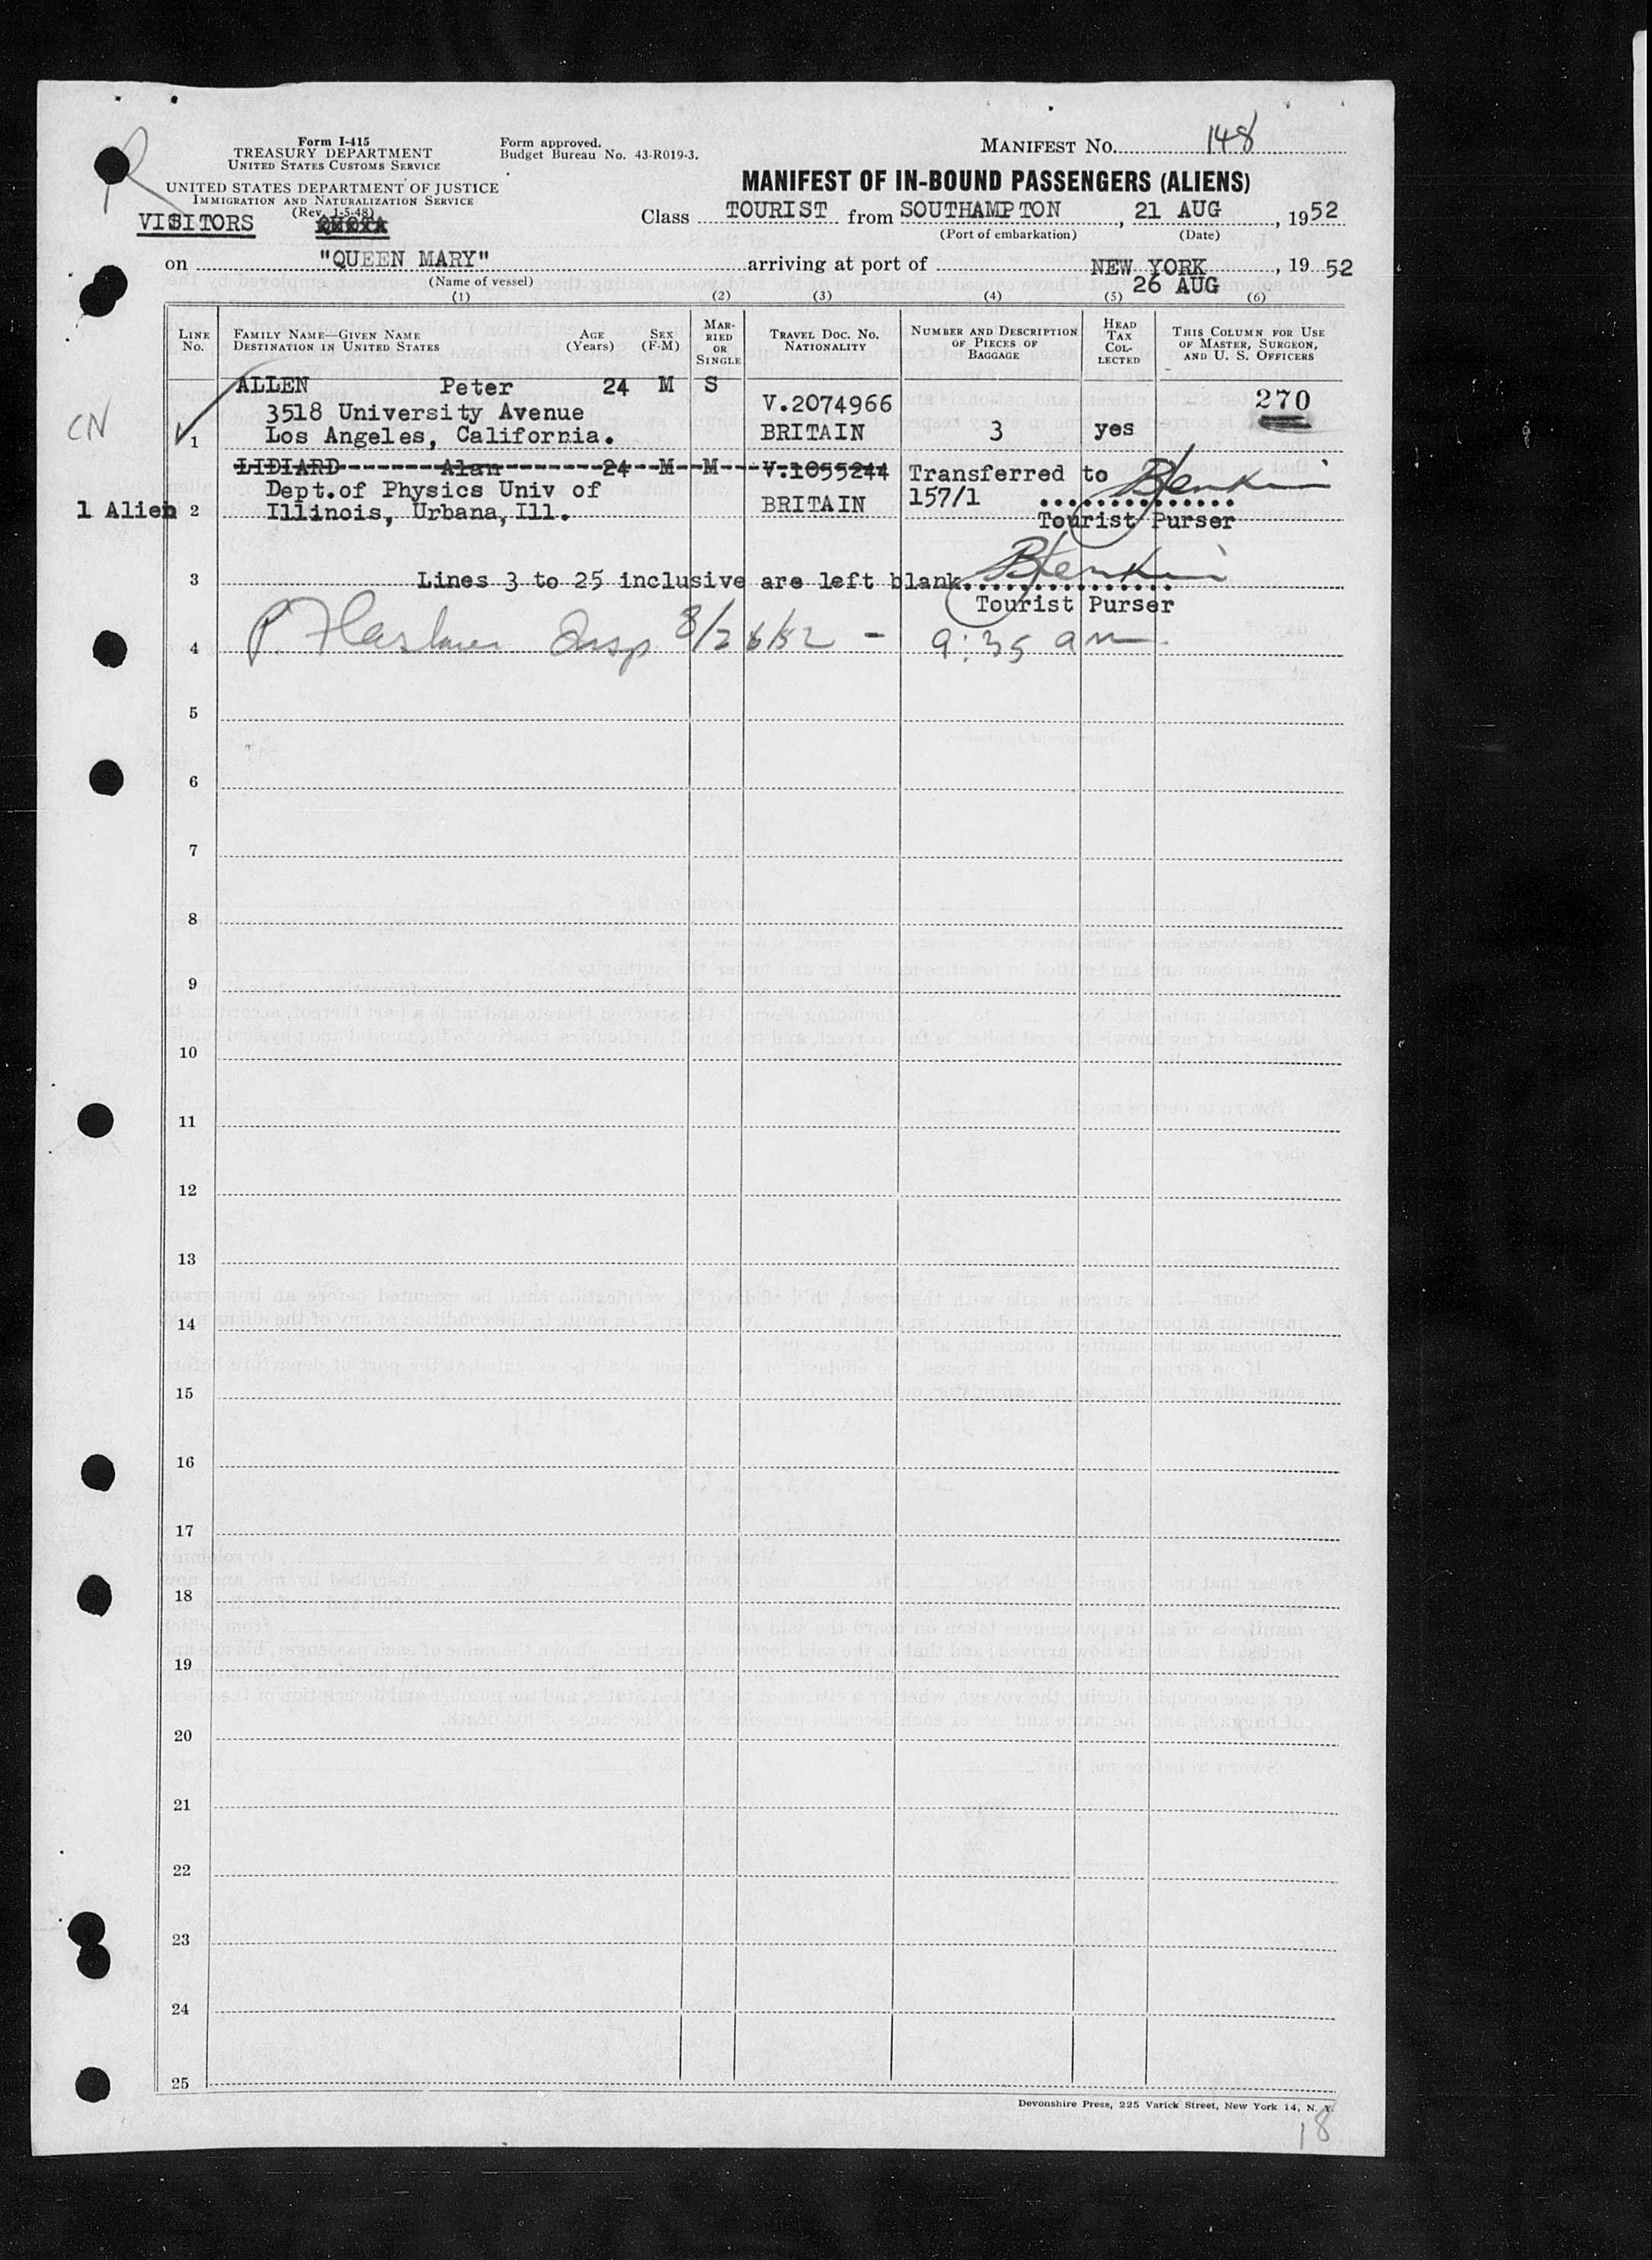 Form I-415
TREASURY DEPARTMENT
UNITED STATES CUSTOMS SERVICE
UNITED STATES DEPARTMENT OF JUSTICE
IMMIGRATION AND NATURALIZATION SERVICE
(Rev. 1-5-48)
VISITORS
Form approved.
Budget Bureau No. 43-R019-3.
MANIFEST NO. 148
MANIFEST OF IN-BOUND PASSENGERS (ALIENS)
Class TOURIST from SOUTHAMPTON, 21 AUG, 1952
(Port of embarkation) (Date)
on "QUEEN MARY" arriving at port of NEW YORK, 19 52
(Name of vessel) 26 AUG
(1) (2) (3) (4) (5) (6)
LINE NO. FAMILY NAME—GIVEN NAME DESTINATION IN UNITED STATES AGE (Years) SEX (F-M) MARRIED OR SINGLE TRAVEL DOC. NO. NATIONALITY NUMBER AND DESCRIPTION OF PIECES OF BAGGAGE HEAD TAX COLLECTED THIS COLUMN FOR USE OF MASTER, SURGEON, AND U. S. OFFICERS
ALLEN Peter 24 M S
3518 University Avenue V.2074966 270
CN 1 Los Angeles, California. BRITAIN 3 yes
LIDIARD Alan 24 M M V.1055244 Transferred to
Dept.of Physics Univ of 157/1
1 Alien 2 Illinois, Urbana, Ill. BRITAIN
Tourist Purser
3 Lines 3 to 25 inclusive are left blank
Tourist Purser
4 P. Insp 8/26/52 - 9:35 am
5
6
7
8
9
10
11
12
13
14
15
16
17
18
19
20
21
22
23
24
25
Devonshire Press, 225 Varick Street, New York 14, N. Y.
18